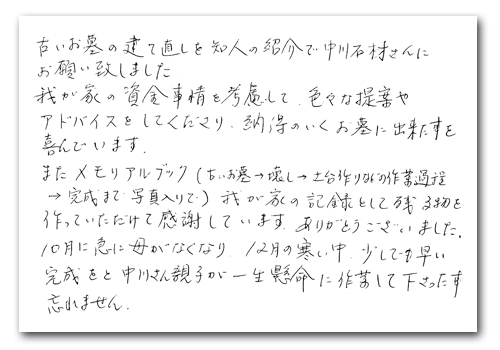 古いお墓の建て直しを知人の紹介で中川石材さんに
お願い致しました
我が家の資金事情を考慮して、色々な提案や
アドバイスをしてくださり、納得のいくお墓に出来た事を
喜んでいます。
またメモリアルブック(古いお墓→壊し→土台作りなどの作業過程
→完成まで写真入りで)我が家の記録として残る物を
作っていただけて感謝しています。ありがとうございました。
10月に急に母がなくなり、12月の寒い中、少しでも早い
完成をと中川さん親子が一生懸命に作業して下さった事
忘れません。